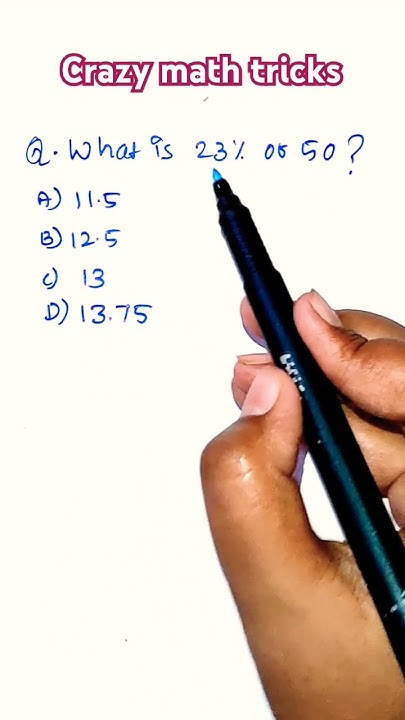 Crazy math tricks
Q. What is 23% of 50?
A) 11.5
B) 12.5
C) 13
D) 13.75